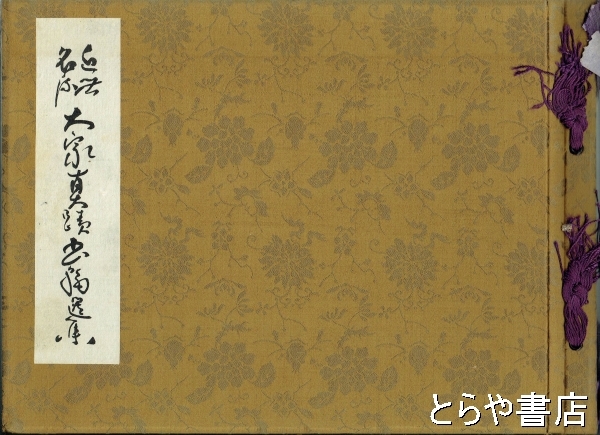 近世
名流
大家真蹟書翰選集
とらや書店